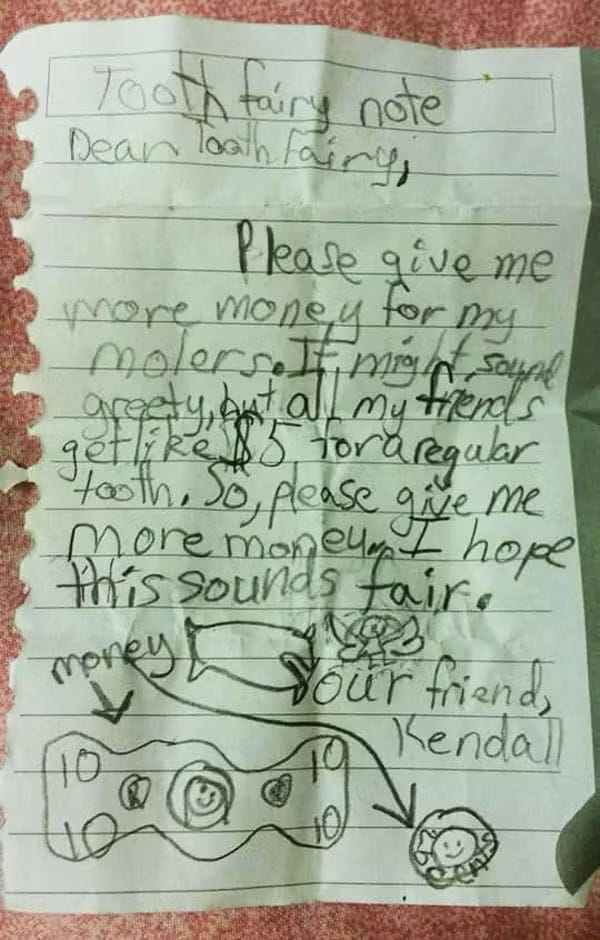 Tooth fairy note
Dear Tooth Fairy,
Please give me
more money for my
molers. It might sound
greety, but all my friends
get like $5 for a regular
tooth. So, please give me
more money. I hope
this sounds fair.
money
Your friend,
Kendall
10 10
10 10
cents